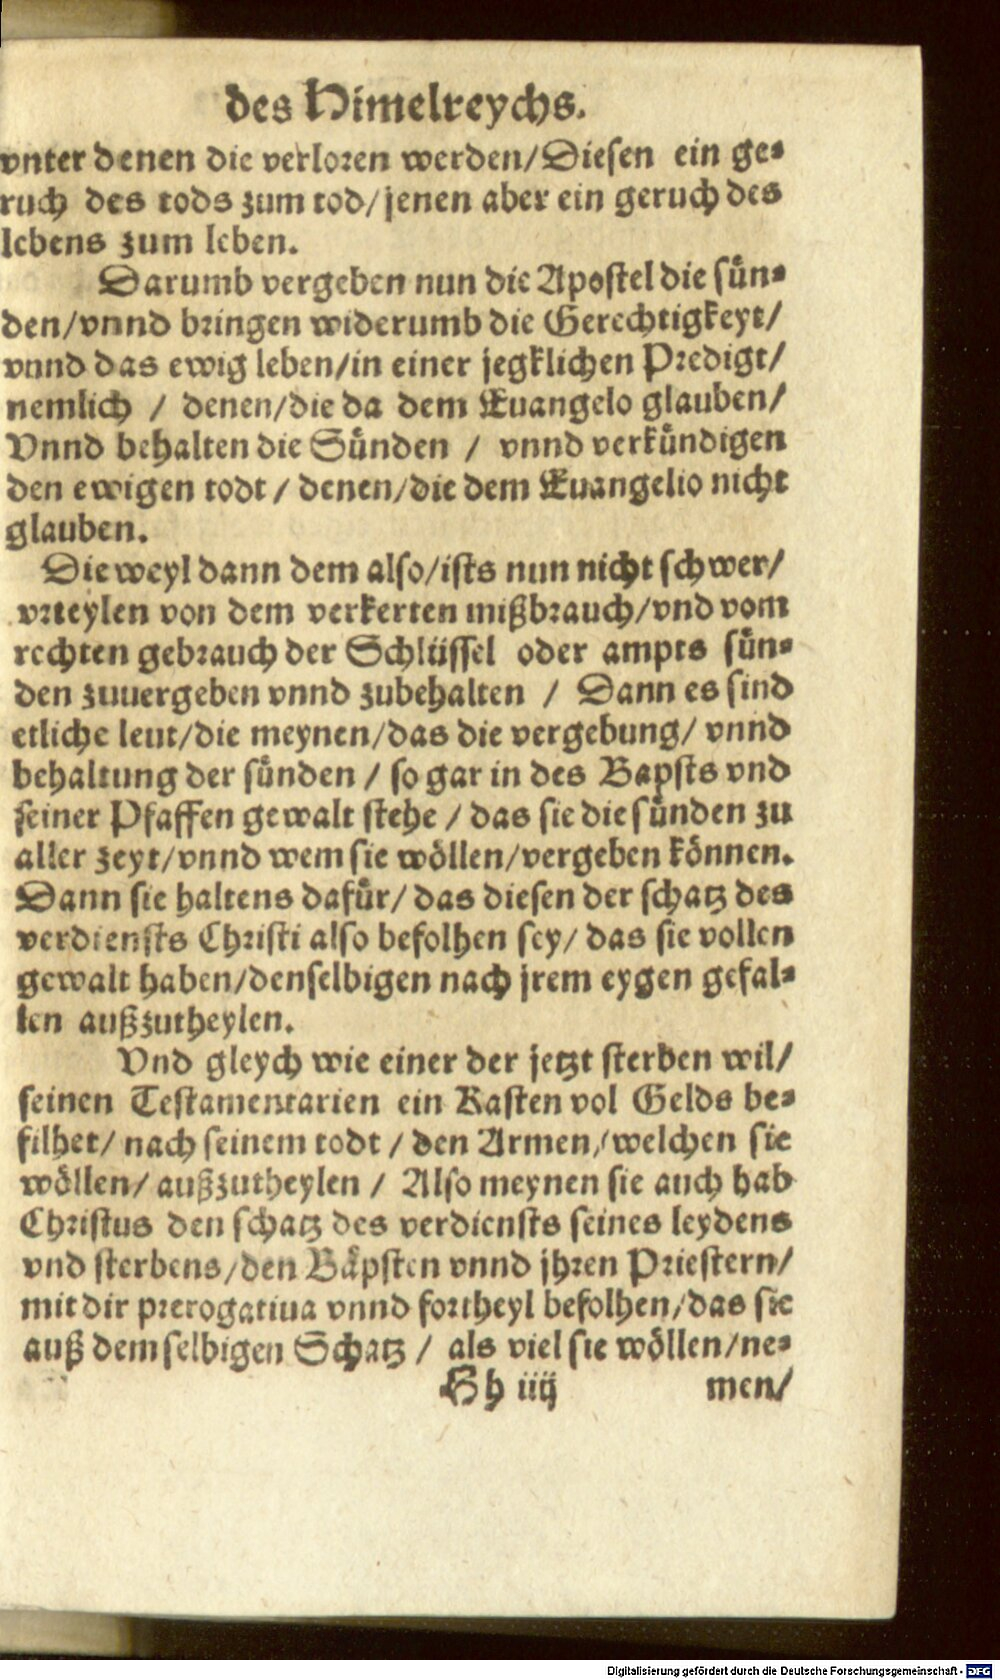 des Himelreychs.
vnter denen die verloren werden/Diesen ein ge⸗
ruch des tods zum tod/jenen aber ein geruch des
lebens zum leben.
Darumb vergeben nun die Apostel die sün⸗
den/vnnd bringen widerumb die Gerechtigkeyt/
vnnd das ewig leben/in einer jegklichen Predigt/
nemlich / denen/die da dem Euangelo glauben/
Vnnd behalten die Sünden / vnnd verkündigen
den ewigen todt / denen/die dem Euangelio nicht
glauben.
Die weyl dann dem also/ists nun nicht schwer/
vrteylen von dem verkerten mißbrauch/vnd vom
rechten gebrauch der Schlüssel oder ampts sün⸗
den zuuergeben vnnd zubehalten / Dann es sind
etliche leut/die meynen/das die vergebung/ vnnd
behaltung der sünden / so gar in des Bapsts vnd
seiner Pfaffen gewalt stehe / das sie die sünden zu
aller zeyt/vnnd wem sie wöllen/vergeben können.
Dann sie haltens dafür/ das diesen der schatz des
verdiensts Christi also befolhen sey/ das sie vollen
gewalt haben/denselbigen nach jrem eygen gefal⸗
len außzutheylen.
Vnd gleych wie einer der jetzt sterben wil/
seinen Testamentarien ein Kasten vol Gelds be⸗
filhet/ nach seinem todt / den Armen/welchen sie
wöllen/ außzutheylen / Also meynen sie auch hab
Christus den schatz des verdiensts seines leydens
vnd sterbens/den Bäpsten vnnd jhren Priestern/
mit dir prerogatiua vnnd fortheyl befolhen/das sie
auß demselbigen Schatz / als viel sie wöllen/ne⸗
Hh iiij men/
Digitalisierung gefördert durch die Deutsche Forschungsgemeinschaft - DFG